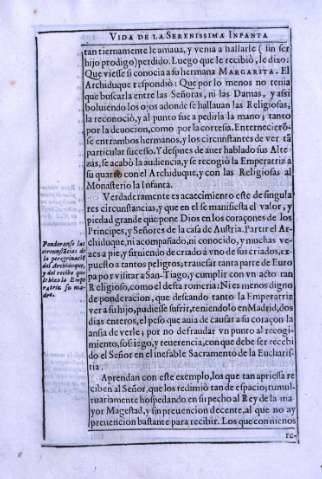 VIDA DE LA SERENISSIMA INFANTA
tan tiernamente le amaua, y venia a hallarle ( sin ser
hijo prodigo) perdido. Luego que le recibiò, le dixo:
Que viesse si conocia a su hermana MARGARITA. El
Archiduque respondiò: Que por lo menos no tenia
que buscarla entre las Señoras, ni las Damas, y assi
boluiendo los ojos adonde se hallauan las Religiosas,
la reconociò, y al punto fue a pedirla la mano; tanto
por la deuocion, como por la cortesia. Enternecierõ-
se entrambos hermanos, y los circunstantes de ver tã
particular sucesso. Y despues de auer hablado sus Alte-
zas, se acabò la audiencia, y se recogiò la Emperatriz a
su quarto con el Archiduque, y con las Religiosas al
Monasterio la Infanta.
Verdaderamente es acaecimiento este de singula
res circunstancias, y que en el se manifiesta el valor, y
piedad grande que pone Dios en los coraçones de los
Principes, y Señores de la casa de Austria. Partir el Ar-
chiduque, ni acompañado, ni conocido, y muchas ve-
zes a pie, y siruiendo de criado a vno de sus criados, ex-
puesto a tantos peligros, trauessar tanta parte de Euro
pa por visitar a San-Tiago, y cumplir con vn acto tan
Religioso, como el desta romeria: Ni es menos digno
de ponderacion, que deseando tanto la Emperatriz
ver a su hijo, pudiesse sufrir, teniendolo en Madrid, dos
dias enteros, el peso que auia de causar a su coraçon la
ansia de verle; por no defraudar vn punto al recogi-
miento, sossiego, y reuerencia, con que deue ser recebi
do el Señor en el inefable Sacramento de la Eucharis-
tia.
Aprendan con este exemplo, los que tan apriessa re
ciben al Señor, que los redimiò tan de espacio; tumul-
tuariamente hospedando en su pecho al Rey de la ma
yor Magestad, y sin preuencion decente, al que no ay
preuencion bastante para recibir. Los que con menos
re-
Ponderanse las
circunstãcias de
la peregrinaciõ
del Archiduque,
y del recibo que
le hizo la Empe
ratriz su ma-
dre.